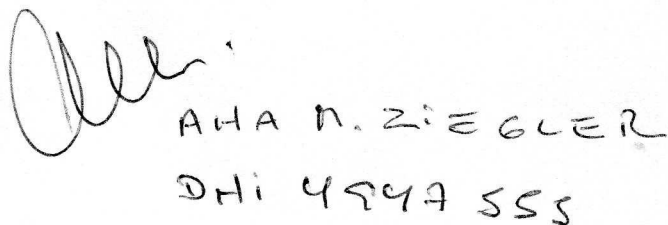 AHA M. ZIEGLER
DHi 4947 555